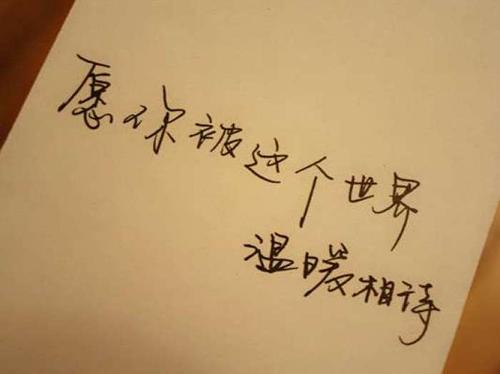 愿你被这个世界
温暖相诗